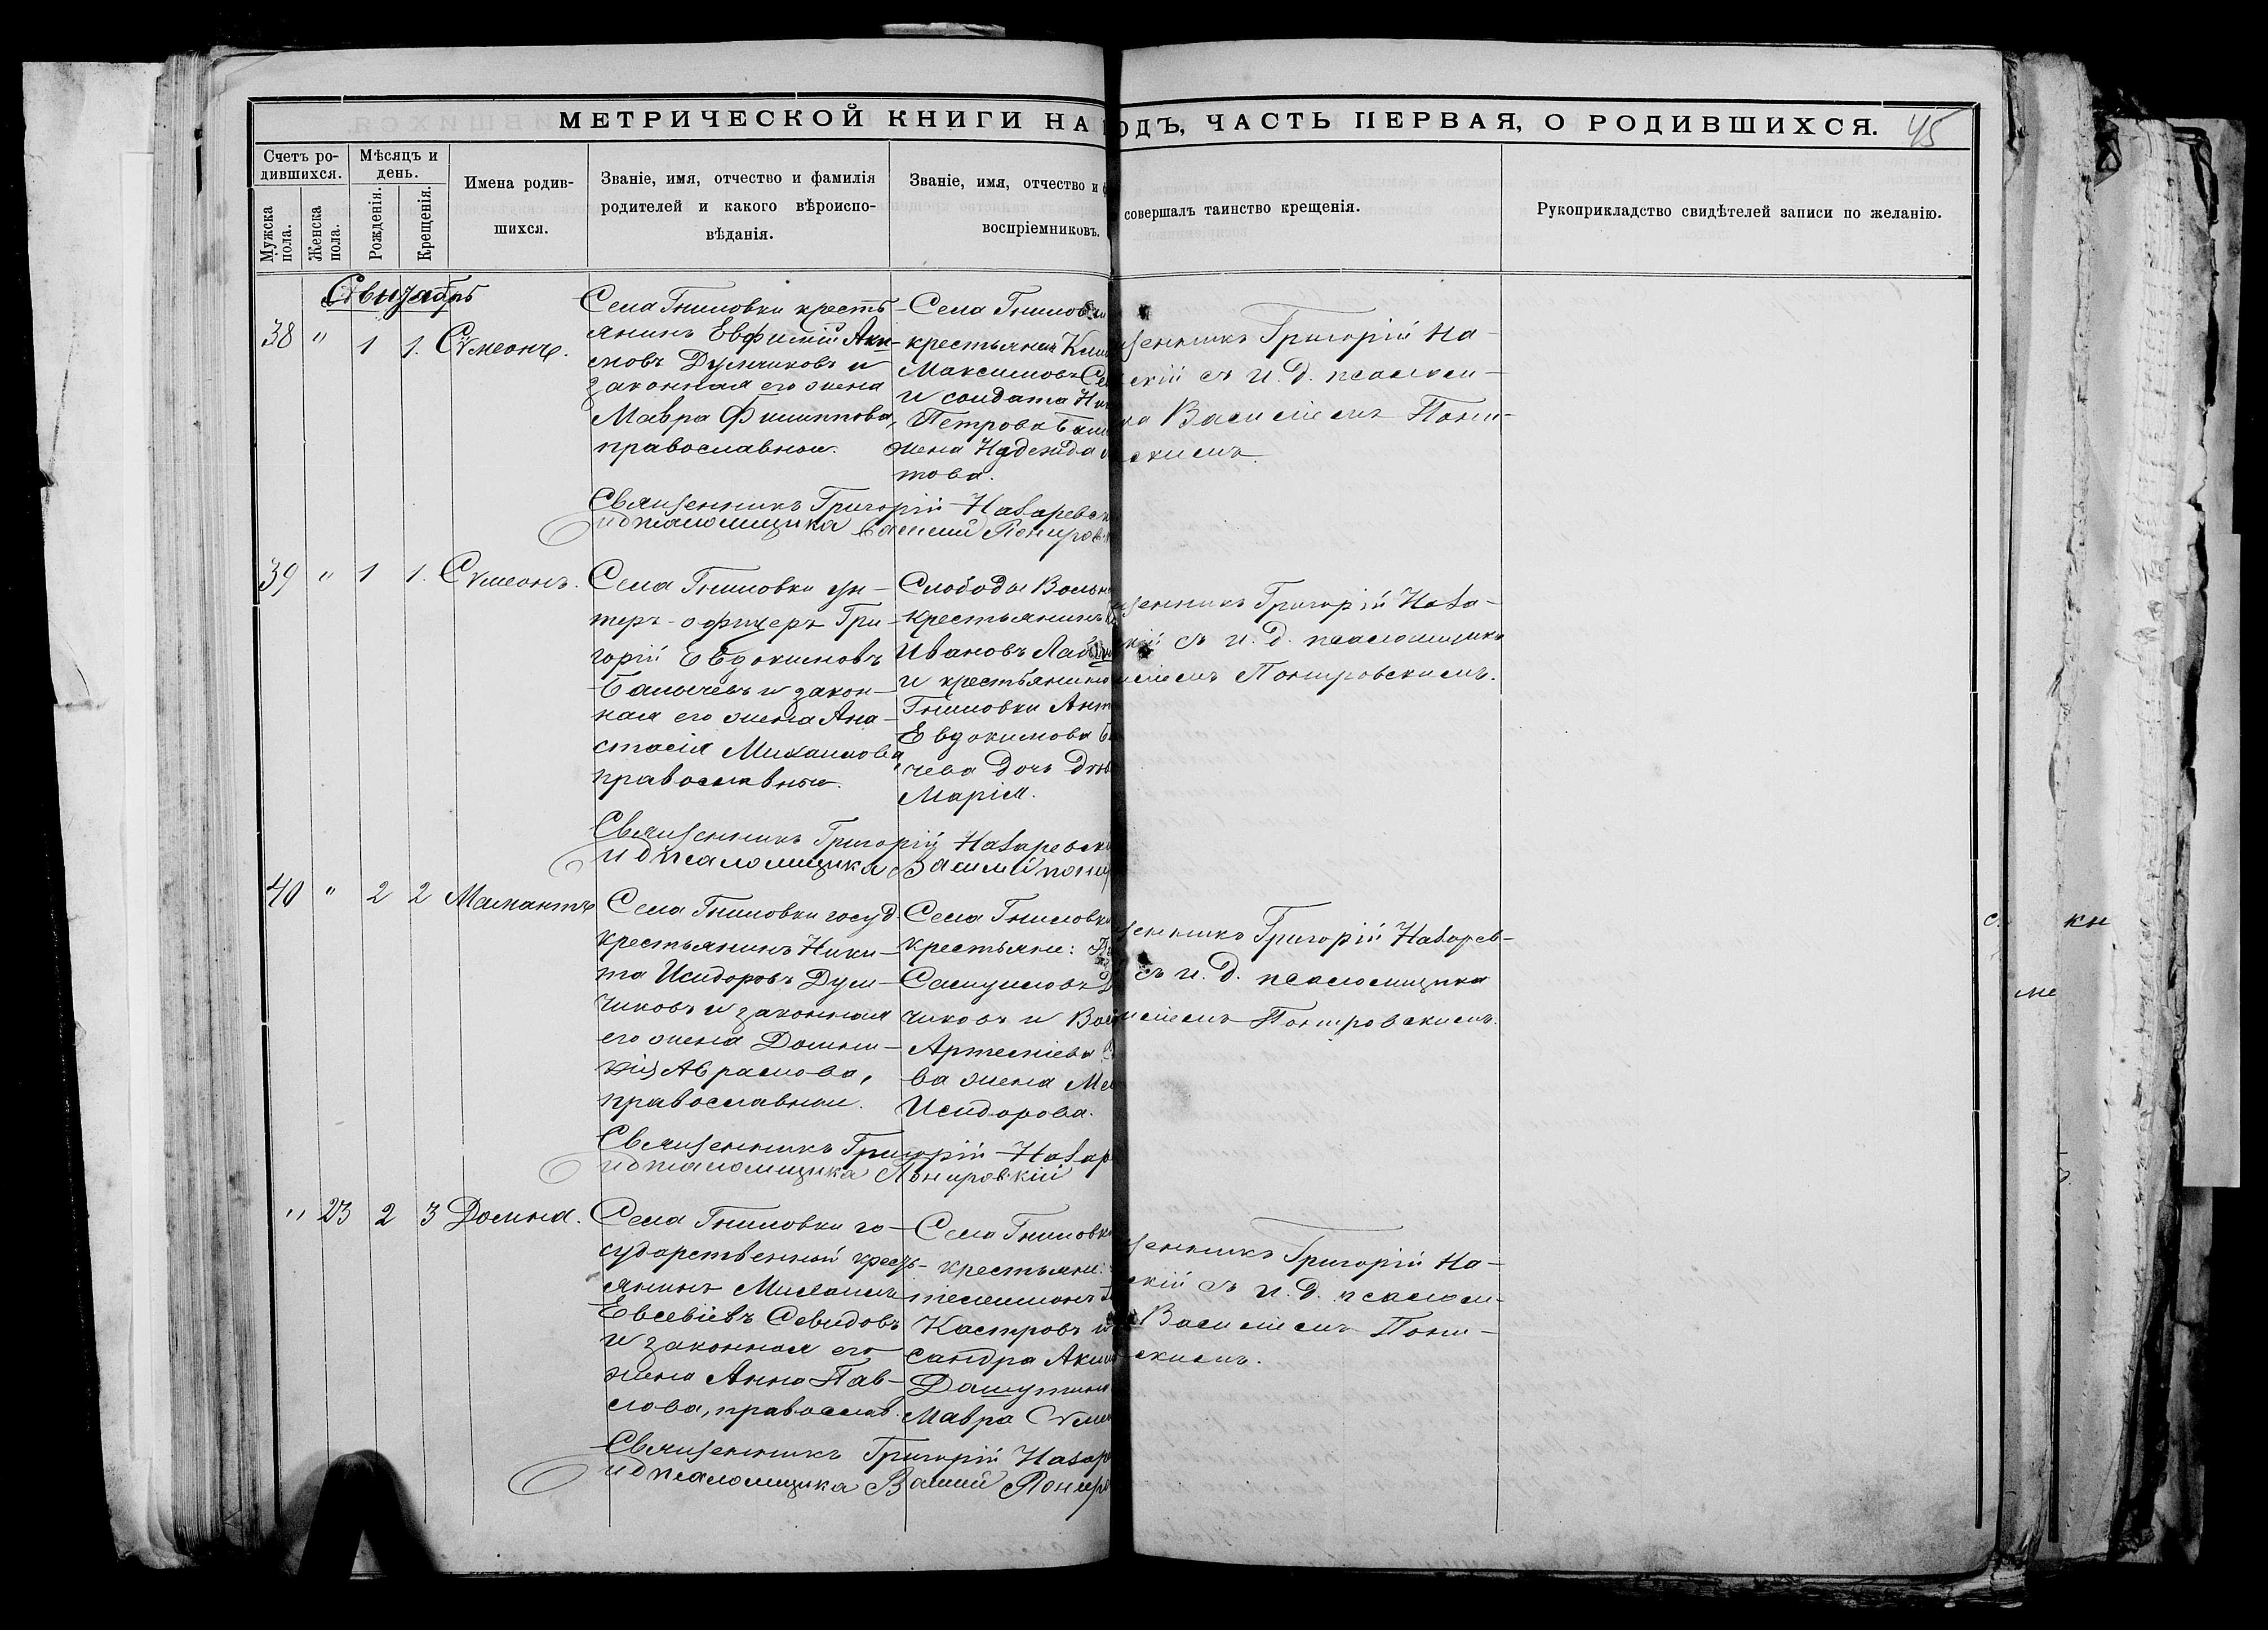 МЕТРИЧЕСКОЙ КНИГИ НА ОДЪ, ЧАСТЬ ПЕРВАЯ, О РОДИВШИХСЯ. 45
Счетъ ро-
дившихся.
Мужска пола.
Женска пола.
Мѣсяцъ и
день.
Рожденія.
Крещенія.
Имена родив-
шихся.
Званіе, имя, отчество и фамилія
родителей и какого вѣроиспо-
вѣданія.
Званіе, имя, отчество и
воспріемниковъ.
совершалъ таинство крещенія.
Рукоприкладство свидѣтелей записи по желанію.
38 " 1 1. Сѵмеонъ.
Села Гниловки кресть-
янинъ Евфимій Аки-
мовъ Думчиковъ и
законная его жена
Мавра Филиппова,
православныи.
Села Гнилов
крестьянин
Максимовъ
и солдата
Петрова
жена Надежда
това.
Григорій На-
скій съ и. д. псалом-
Василіемъ Пони-
скимъ.
Священникъ Григорій Назаревск
и д псаломщика Василий Пониров
39 " 1 1. Сѵмеонъ.
Села Гниловки ун-
теръ-офицеръ Гри-
горій Евдокимовъ
Балычевъ и закон-
ная его жена Ана-
стасія Михаилова,
православныи.
Слободы
крестьянинъ
Ивановъ
и крестьянина
Гниловки
Евдокимова
чева дочь
Марія.
Григорій Наза-
съ и. д. псаломщика
Понировскимъ.
Священникъ Григорій Назаревск
и д псаломщика Василий
40 " 2 2 Мамантъ
Села Гниловки госуд.
крестьянинъ Ники-
та Исидоровъ Дум-
чиковъ и законная
его жена Домни-
кія Абрамова,
православныи.
Села Гниловки
крестьяне:
Самуиловъ
чиковъ и
Артеміева
ва жена
Исидорова.
Григорій Назарев-
съ и. д. псаломщика
Понировскимъ.
Священникъ Григорій Назар
и д псаломщика Понировскій
" 23 2 3 Домна.
Села Гниловки го-
сударственный кресть-
янинъ Михаилъ
Евсевіевъ Севидовъ
и законная его
жена Анна Пав-
лова, православ.
Села Гниловки
крестьяне:
телеимонъ
Кастровъ и
сандра
Дашутина
Мавра
Григорій На-
скій съ и. д. псалом-
Василіемъ Пони-
скимъ.
Священникъ Григорій Назар
и д псаломщика Василий Пониро